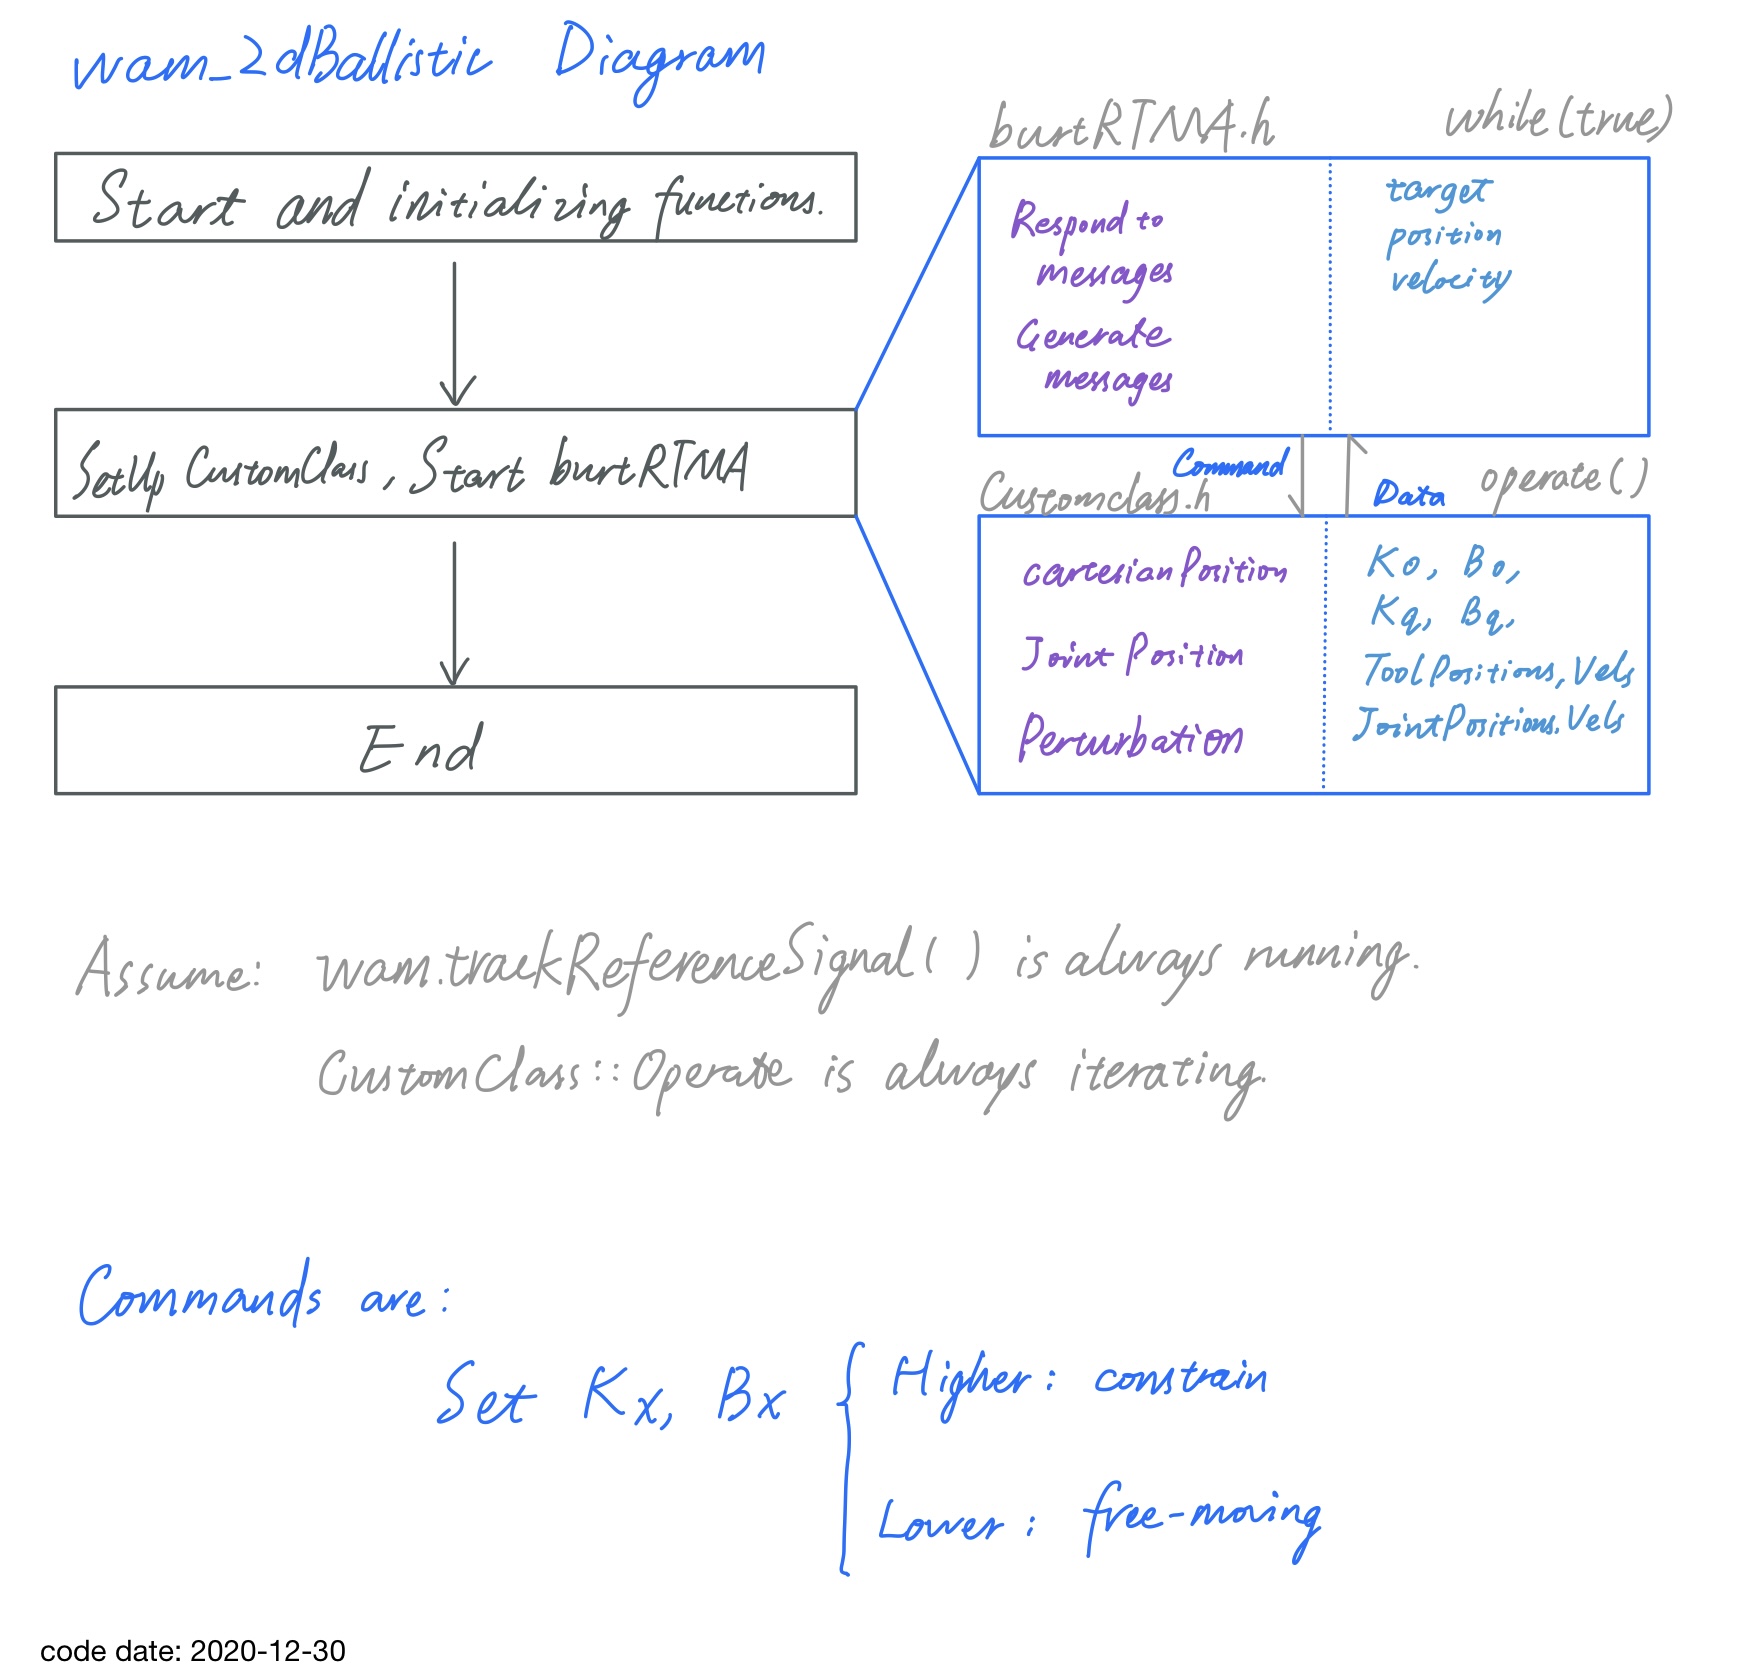 wam_2dBallistic Diagram
Start and initializing functions.
SetUp CustomClass, Start burtRTMA
End
burtRTMA.h
while(true)
Respond to
messages
Generate
messages
target
position
velocity
Command
Data
Customclass.h
operate()
cartesianPosition
Joint Position
Perturbation
Ko, Bo,
Kq, Bq,
ToolPositions, Vels
JointPositions. Vels
Assume: wam.trackReferenceSignal( ) is always running.
CustomClass::Operate is always iterating.
Commands are:
Set Kx, Bx
Higher: constrain
Lower: free-moving
code date: 2020-12-30